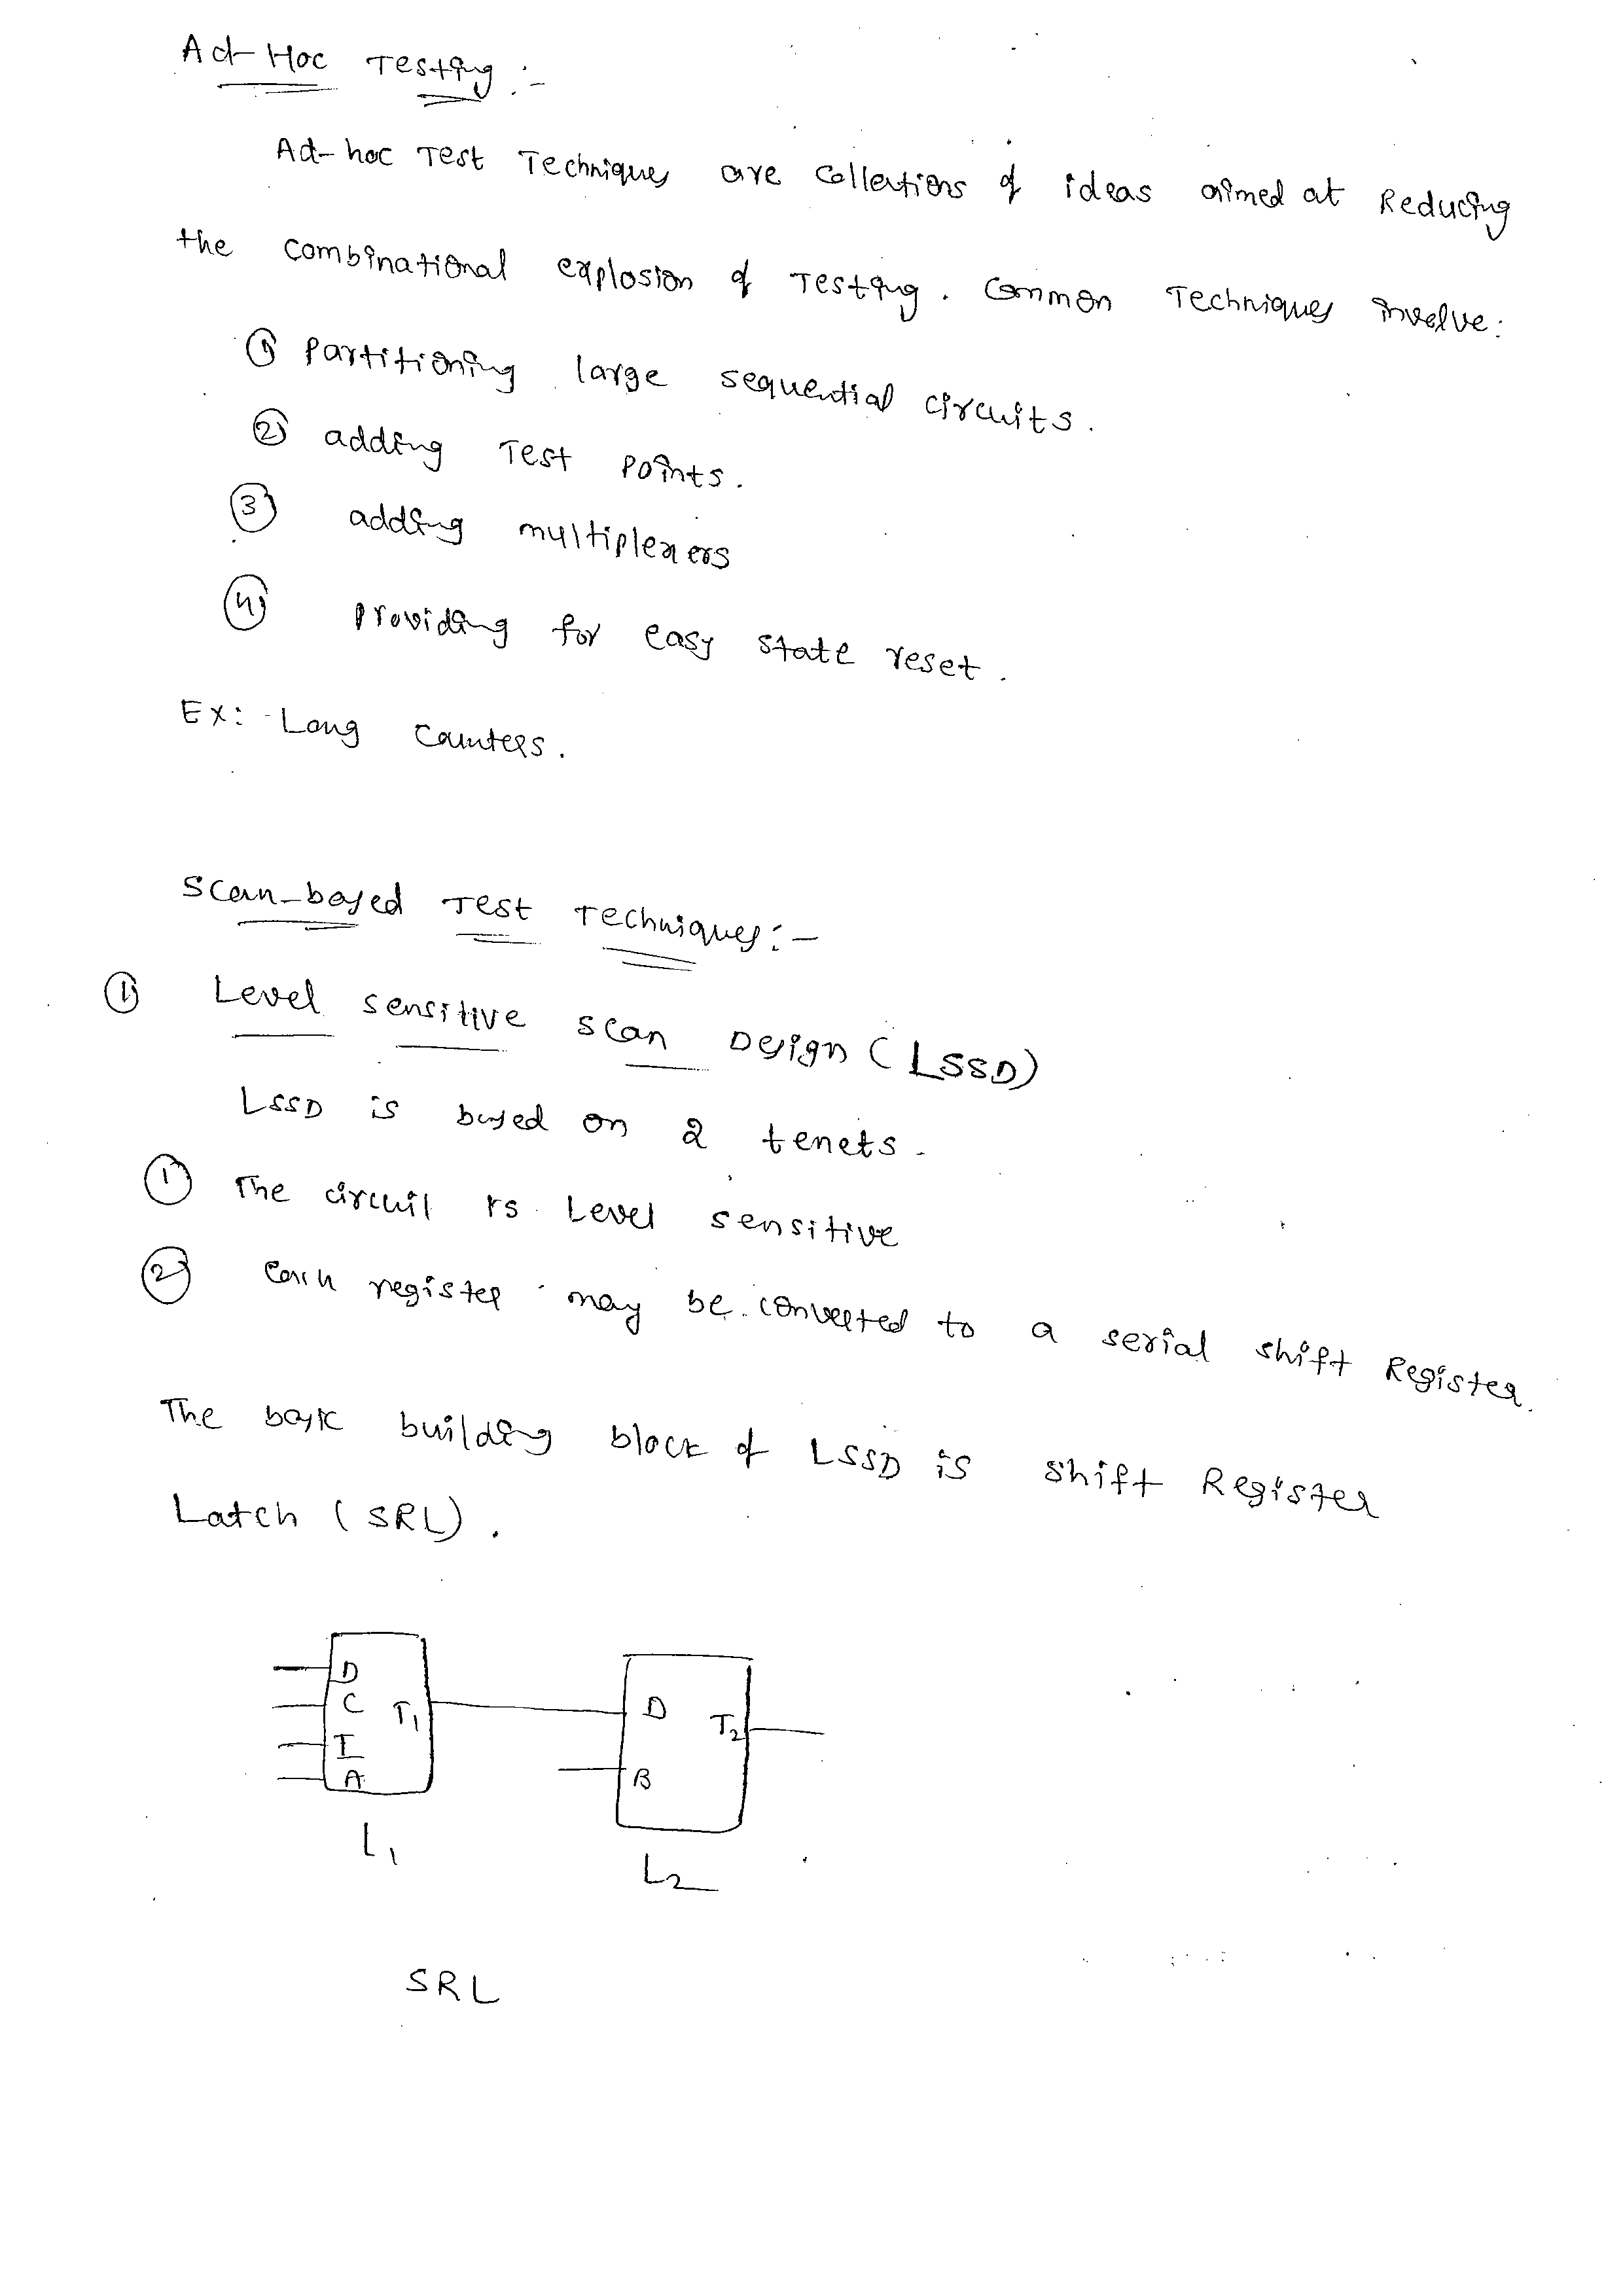 Ad-Hoc Testing :-
Ad-hoc Test Techniques are Collections of ideas aimed at Reducing
the combinational explosion of Testing. Common Techniques involve:
① Partitioning large sequential circuits.
② adding Test Points.
③ adding multiplexers
④ Providing for easy state reset.
Ex: Long Counters.
Scan-based Test Techniques:-
① Level sensitive scan Design (LSSD)
LSSD is based on 2 tenets.
① The circuit is Level sensitive
② Each register may be converted to a serial shift Register.
The basic building block of LSSD is shift Register
Latch (SRL).
D
C
I
A
T1
D
B
T2
L1
L2
SRL